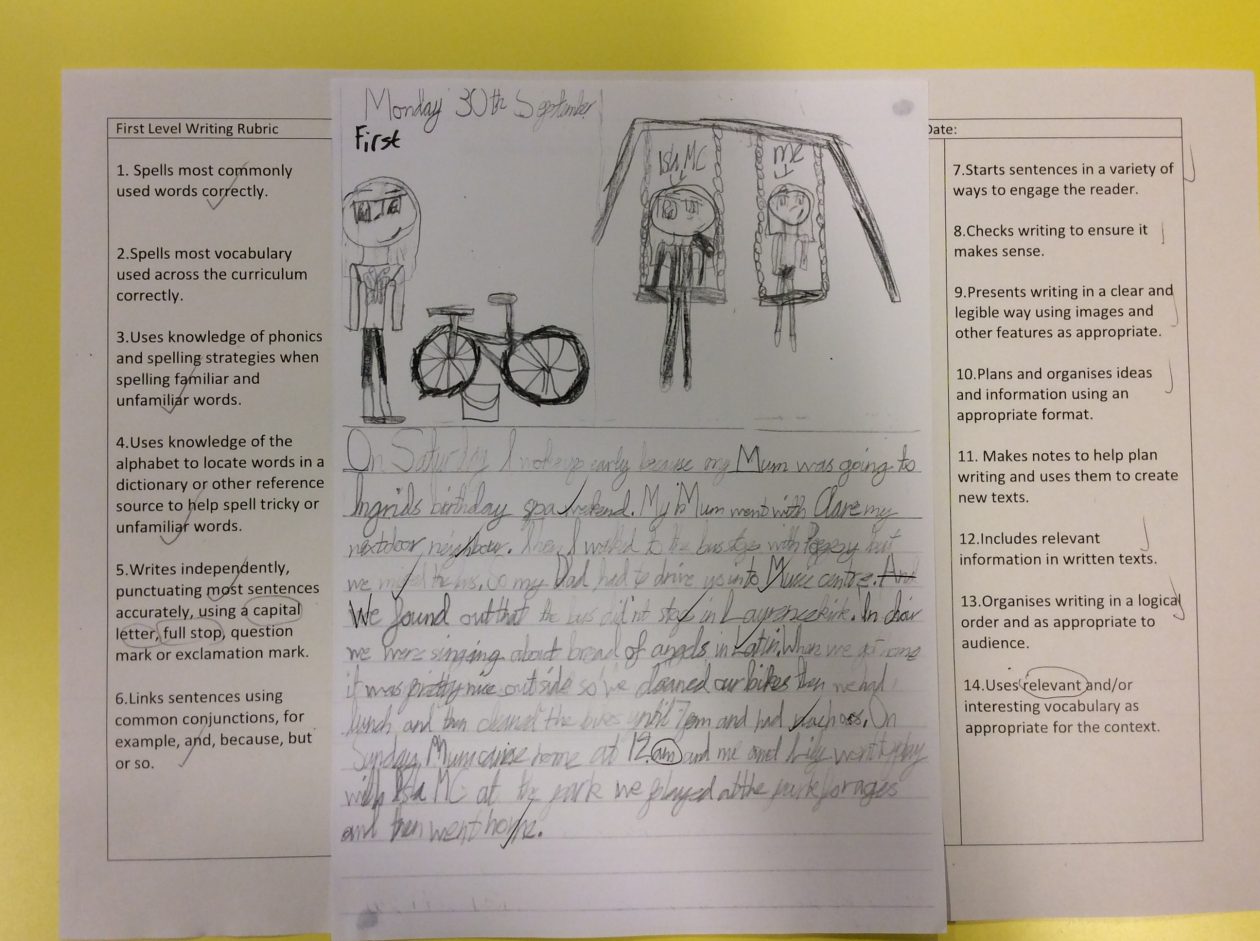 First Level Writing Rubric
1. Spells most commonly
used words correctly.
2.Spells most vocabulary
used across the curriculum
correctly.
3.Uses knowledge of phonics
and spelling strategies when
spelling familiar and
unfamiliar words.
4.Uses knowledge of the
alphabet to locate words in a
dictionary or other reference
source to help spell tricky or
unfamiliar words.
5.Writes independently,
punctuating most sentences
accurately, using a capital
letter, full stop, question
mark or exclamation mark.
6.Links sentences using
common conjunctions, for
example, and, because, but
or so.
Monday 30th September
First
Isla MC
me
On Saturday I woke up early because my Mum was going to
Ingrids birthday spa wekend. My Mum went with Clare my
nextdoor neighbour. Then I walked to the bus stop with but
we missed the bus. So my Dad had to drive us into Music centre. And
We found out that the bus did nt stop in In choir
we were singing about bread of angels in Latin. When we got home
it was pretty nice outside so we cleaned our bikes then we had
lunch and then cleaned the bikes until 7pm and had nachoes. On
Sunday Mum came home at 12 am and me and Lily went to play
with Isla MC at the park we played at the park for ages
and then went home.
Date:
7.Starts sentences in a variety of
ways to engage the reader.
8.Checks writing to ensure it
makes sense.
9.Presents writing in a clear and
legible way using images and
other features as appropriate.
10.Plans and organises ideas
and information using an
appropriate format.
11. Makes notes to help plan
writing and uses them to create
new texts.
12.Includes relevant
information in written texts.
13.Organises writing in a logical
order and as appropriate to
audience.
14.Uses relevant and/or
interesting vocabulary as
appropriate for the context.